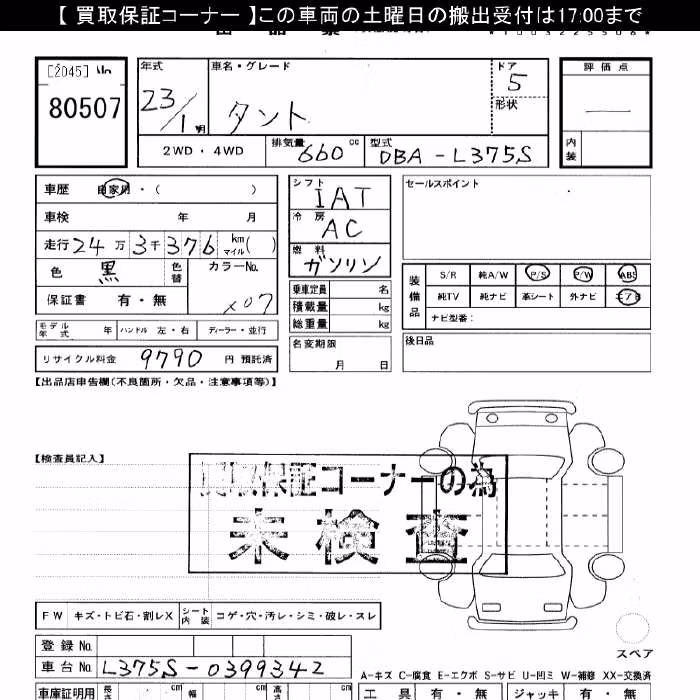 【 買取保証コーナー 】この車両の土曜日の搬出受付は17:00まで
[2045] No
80507
年式 23/1 明
車名・グレード タント
ドア 5
形状
評価点
内装
2WD・4WD
排気量 660 cc
型式 DBA-L375S
車歴 自家用・( )
車検 年 月
走行 24万 3千 376 km マイル( )
色 黒 色替
カラーNo. X07
保証書 有・無
モデル年式 年 ハンドル 左・右 ディーラー・並行
リサイクル料金 9790 円 預託済
シフト IAT
冷房 AC
燃料 ガソリン
乗車定員 名
積載量 kg
総重量 kg
名変期限
月 日
セールスポイント
装備品
S/R 純A/W P/S P/W ABS
純TV 純ナビ 革シート 外ナビ エアB
ナビ型番:
後日品
【出品店申告欄(不良箇所・欠品・注意事項等)】
【検査員記入】
買取保証コーナーの為
未検査
FW キズ・トビ石・割レX シート内装 コゲ・穴・汚レ・シミ・破レ・スレ
登録 No.
車台 No. L375S-0399342
スペア
A-キズ C-腐食 E-エクボ S-サビ U-凹ミ W-補修 XX-交換済
車庫証明用 長さ cm 幅 cm 高さ cm
工具 有・無 ジャッキ 有・無